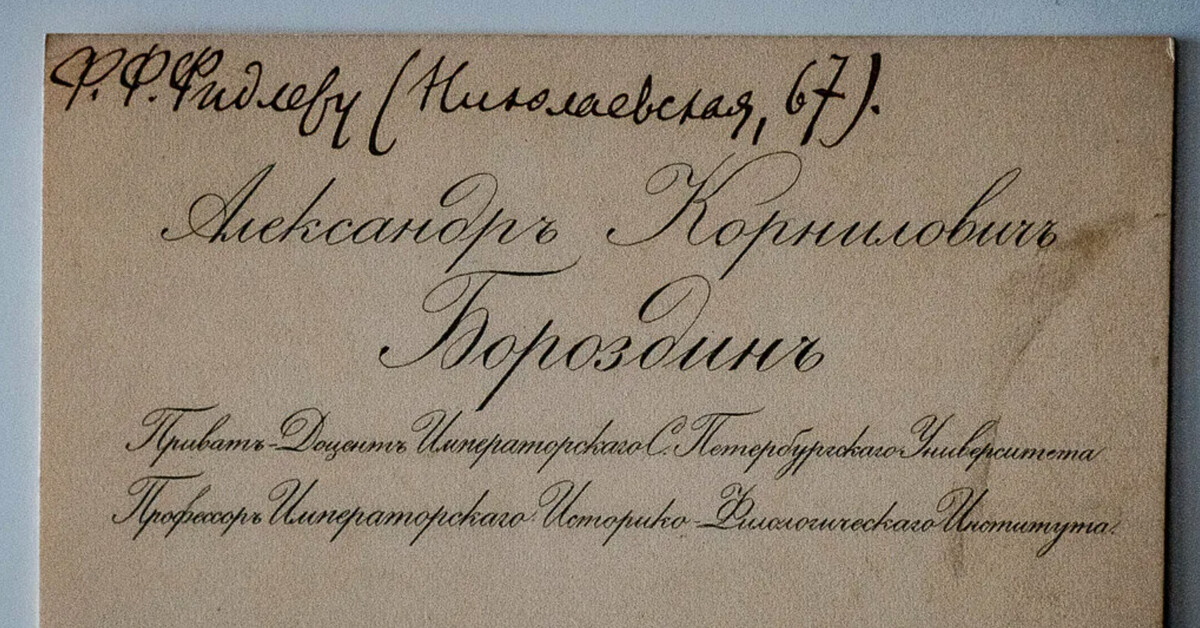 Ф. Ф. Фидлеру (Николаевская, 67).
Александръ Корниловичъ
Бороздинъ
Приватъ-Доцентъ Императорскаго С. Петербургскаго Университета
Профессоръ Императорскаго Историко-Филологическаго Института.